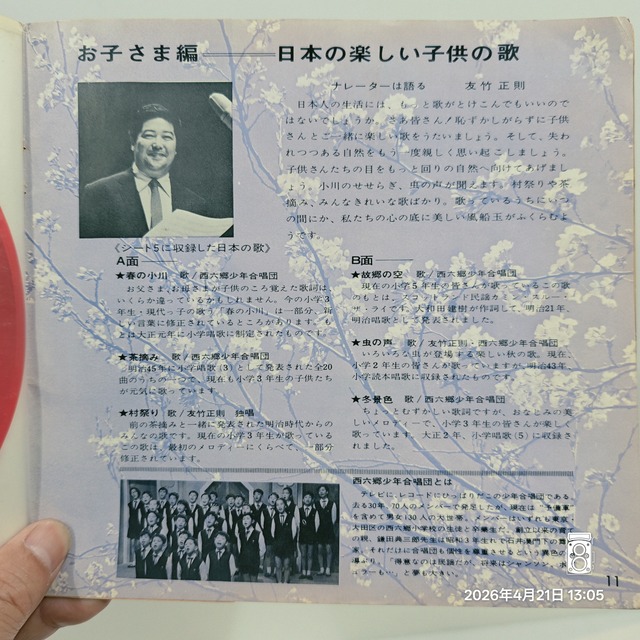 お子さま編――日本の楽しい子供の歌
ナレーターは語る　友竹正則
日本人の生活には、もっと歌がとけこんでもいいので
はないでしょうか。さあ皆さん！恥ずかしがらずに子供
さんとご一緒に楽しい歌をうたいましょう。そして、失わ
れつつある自然をもう一度親しく思い起こしましょう。
子供さんたちの目をもっと回りの自然へ向けてあげまし
ょう。小川のせせらぎ、虫の声が聞えます。村祭りや茶
摘み、みんなきれいな歌ばかり。歌っているうちにいつ
の間にか、私たちの心の底に美しい風船玉がふくらむよ
うです。
《シート5に収録した日本の歌》
A面――
★春の小川　歌／西六郷少年合唱団
お父さま、お母さまが子供のころ覚えた歌詞は
いくらか違っているかもしれません。今の小学3
年生・現代っ子の歌う「春の小川」は一部分、新
しい言葉に修正されているところがあります。も
とは大正元年に小学唱歌に制定されたものです。
★茶摘み　歌／西六郷少年合唱団
明治45年に小学唱歌（3）として発表された全20
曲のうちの一つで、現在も小学3年生の子供たち
が元気に歌っています。
★村祭り　歌／友竹正則　独唱
前の茶摘みと一緒に発表された明治時代からの
みんなの歌です。現在の小学3年生が歌っている
この歌は、最初のメロディーにくらべて、一部分
修正されています。
B面――
★故郷の空　歌／西六郷少年合唱団
現在の小学5年生の皆さんが歌っているこの歌
のもとは、スコットランド民謡カミン・スルー・
ザ・ライです。大和田建樹が作詞して、明治21年、
明治唱歌として発表されました。
★虫の声　歌／友竹正則・西六郷少年合唱団
いろいろな虫が登場する楽しい秋の歌。現在、
小学2年生の皆さんが歌っていますが、明治43年、
小学読本唱歌に収録されたものです。
★冬景色　歌／西六郷少年合唱団
ちょっとむずかしい歌詞ですが、おなじみの美
しいメロディーで、小学3年生の皆さんが楽しく
歌っています。大正2年、小学唱歌（5）に収録さ
れました。
西六郷少年合唱団とは
テレビに、レコードにひっぱりだこの少年合唱団である。
去る30年、70人のメンバーで発足したが、現在は「予備軍」
を含めて男女130人の大世帯。メンバーはいずれも東京・
大田区の西六郷小学校の生徒と卒業生だ。創立以来の育て
の親、鎌田典三郎先生は昭和3年生れで石井漠門下の舞踊
家。それだけに合唱団も個性を尊重するという異色の
導ぶり。「得意なのは民謡だが、将来はシャンソン、ボ
ルラーも…」と夢も大きい。
11
2026年4月21日 13:05